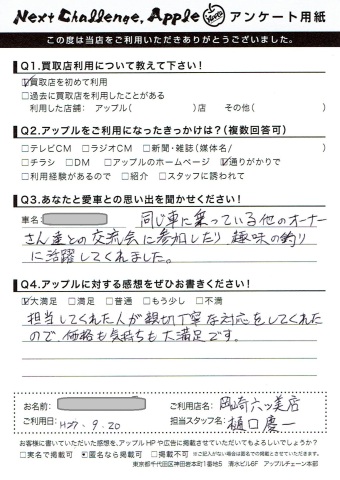 Next Challenge, Apple アンケート用紙
この度は当店をご利用いただきありがとうございました。
Q1.買取店利用について教えて下さい！
☑買取店を初めて利用
□過去に買取店を利用したことがある
利用した店舗： アップル（ ）店 その他（ ）
Q2.アップルをご利用になったきっかけは？（複数回答可）
□テレビCM □ラジオCM □新聞・雑誌（媒体名/ ）
□チラシ □DM □アップルのホームページ ☑通りがかりで
□利用経験があるので □紹介 □スタッフに誘われて
Q3.あなたと愛車との思い出を聞かせください！
車名： 同じ車に乗っている他のオーナー
さん達との交流会に参加したり 趣味の釣り
に活躍してくれました。
Q4.アップルに対する感想をぜひお書きください！
☑大満足 □満足 □普通 □もう少し □不満
担当してくれた人が親切丁寧な対応をしてくれた
ので、価格も気持ちも大満足です。
お名前： ご利用店名： 岡崎六ッ美店
ご利用日： H27.9.20 担当スタッフ名： 樋口慶一
お客様に書いていただいた感想を、アップルHPや広告に掲載させていただいてもよろしいでしょうか？
□実名で掲載可 ■匿名なら掲載可 □掲載不可 ※ご記入がない場合は匿名での掲載とさせていただきます。
東京都千代田区神田岩本町1番地5 清水ビル6F アップルチェーン本部